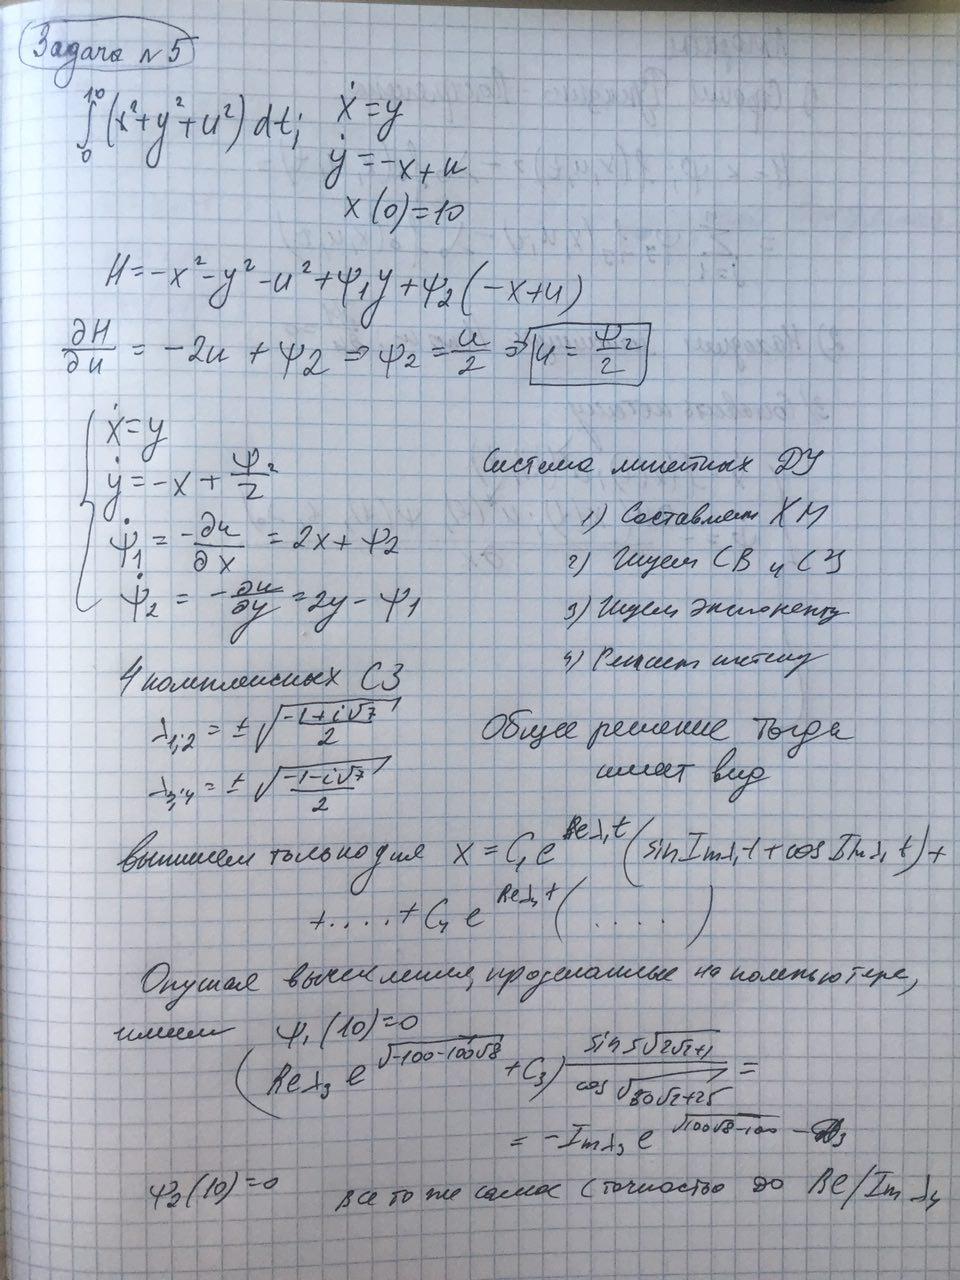 Задача №5
∫₀¹⁰ (x²+y²+u²) dt; ẋ=y
ẏ=-x+u
x(0)=10
H=-x²-y²-u²+ψ₁y+ψ₂(-x+u)
∂H/∂u = -2u+ψ₂ ⇒ ψ₂=u/2 ⇒ u=ψ₂/2
ẋ=y
ẏ=-x+ψ₂/2
ψ̇₁ = -∂u/∂x = 2x+ψ₂
ψ̇₂ = -∂u/∂y = 2y-ψ₁
Система линейных ДУ
1) Составляем ХМ
2) Ищем СВ и СЗ
3) Ищем экспоненту
4) Решаем систему
4 комплексных СЗ
λ₁,₂ = ±√((-1+i√7)/2)
λ₃,₄ = ±√((-1-i√7)/2)
Общее решение тогда
имеет вид
выпишем только для x = C₁e^(Reλ₁t) (sin Imλ₁t + cos Imλ₁t)+
+....+C₄e^(Reλ₄t) (....)
Опуская вычисления, проделанные на компьютере,
имеем ψ₁(10)=0
(Reλ₃ e^(√(-100-100√8)) + C₃) sin 5√(2√2+1) / cos √(50√2+25) =
= -Imλ₃ e^(√(100√8-100)) -
ψ₂(10)=0 все то же самое с точностью до Re/Im λ₄